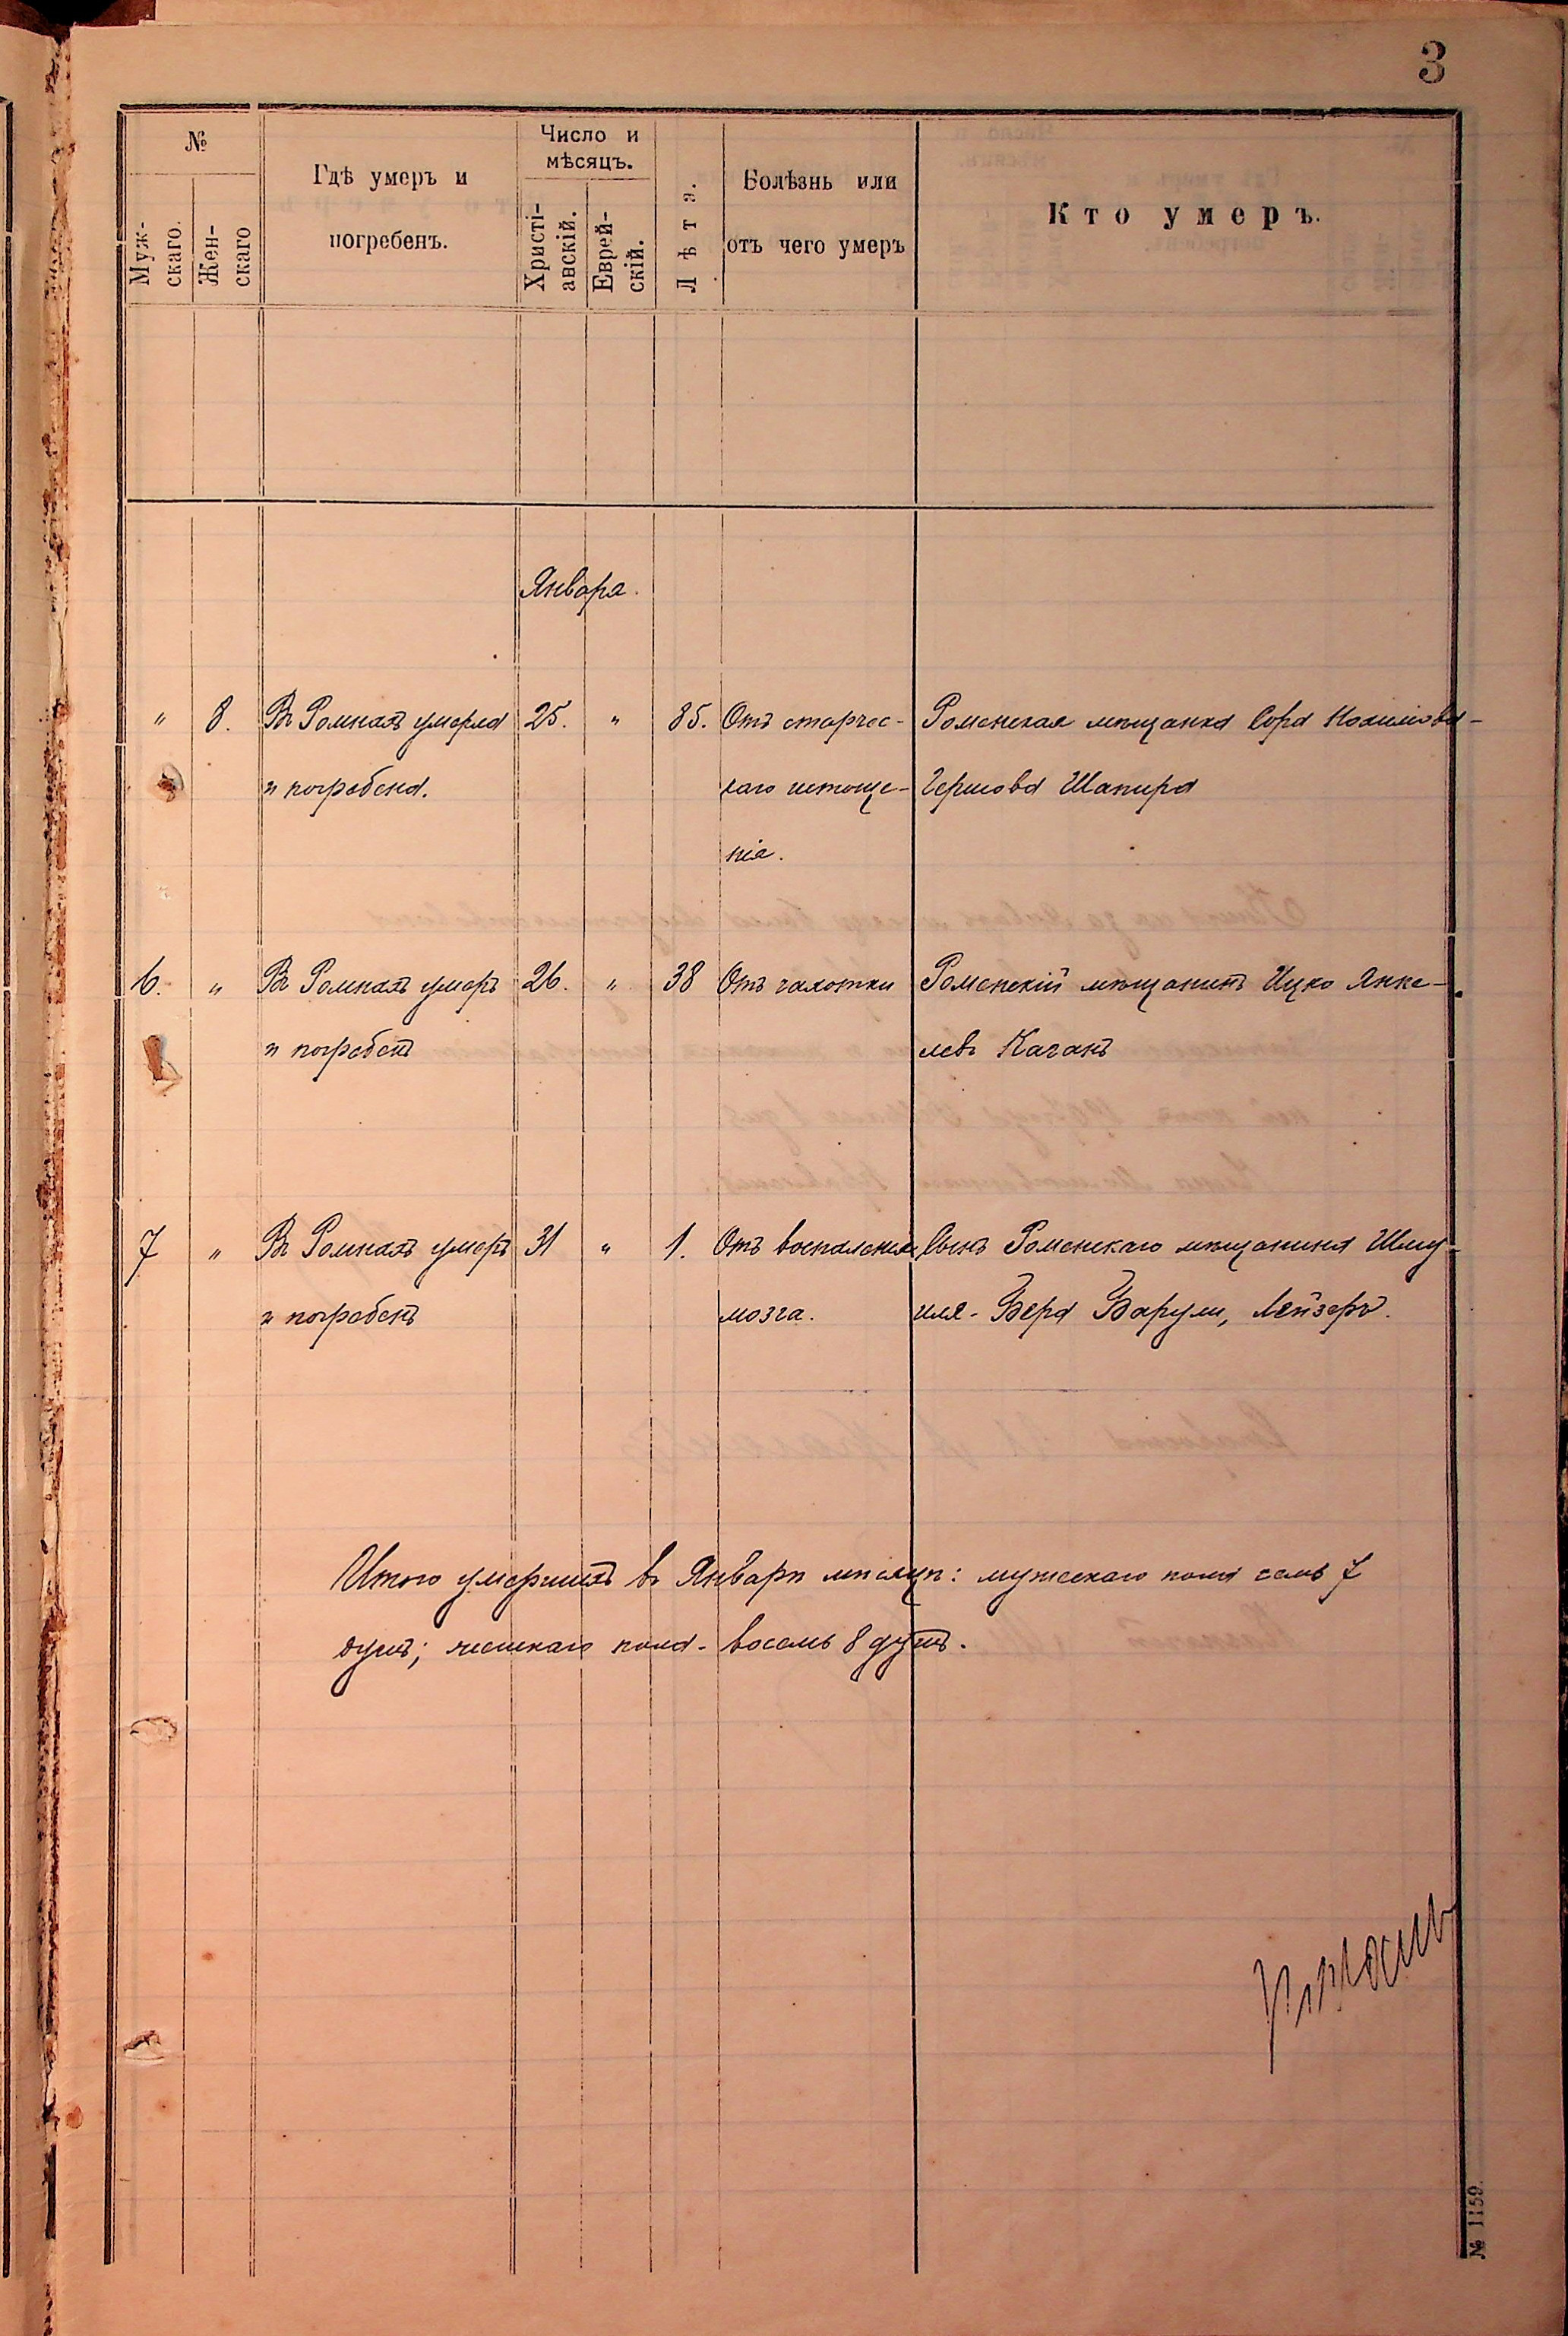 3
№
Муж-
скаго.
Жен-
скаго
Гдѣ умеръ и
погребенъ.
Число и
мѣсяцъ.
Христі-
анскій.
Еврей-
скій.
Лѣта.
Болѣзнь или
отъ чего умеръ
Кто умеръ.
Января.
" 8. Въ Ромнахъ умерла 25. " 85. Отъ старчес- Роменская мѣщанка Сора
и погребена. каго истоще- Гершова Шапира
нія.
6. " Въ Ромнахъ умеръ 26. " 38 Отъ чахотки Роменскій мѣщанинъ Ицко Янке-
и погребенъ левъ Каганъ
7 " Въ Ромнахъ умеръ 31 " 1. Отъ воспаленія Сынъ Роменскаго мѣщанина Шму-
и погребенъ мозга. иля-Бера Лейзеръ.
Итого умершихъ въ Январѣ мѣсяцѣ: мужескаго пола семь 7
душъ; женскаго пола - восемь 8 душъ.
№ 1159.